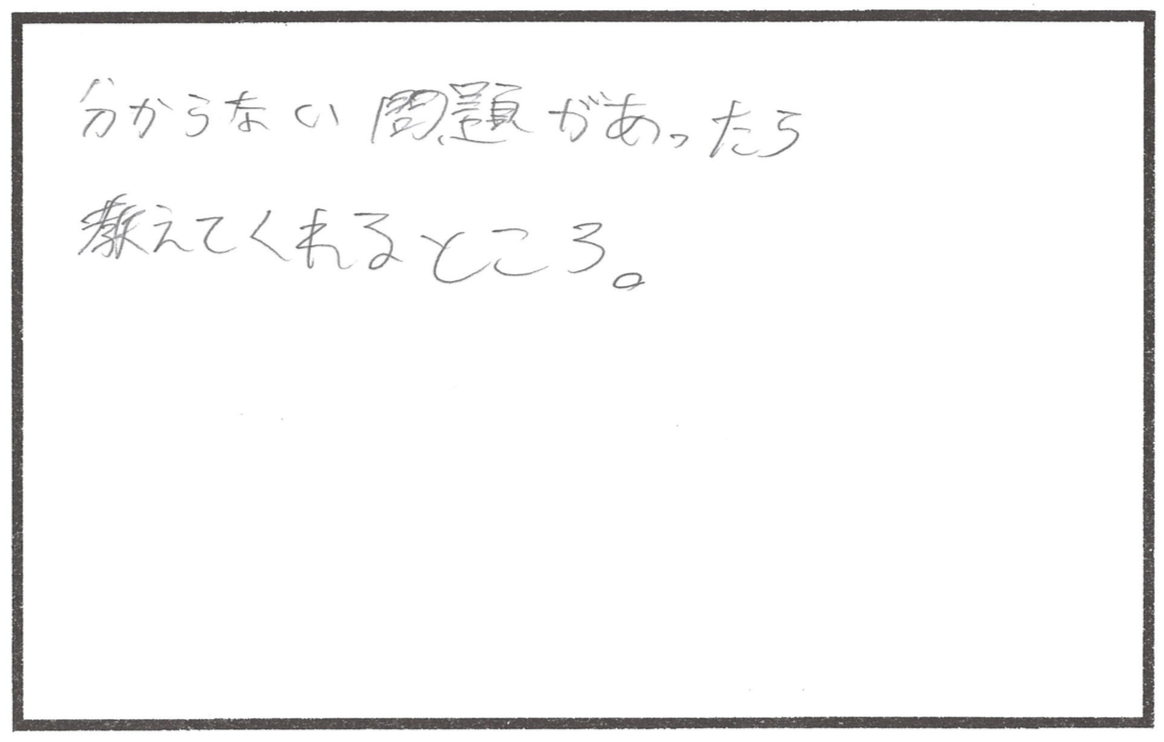 分からない問題があったら
教えてくれるところ。